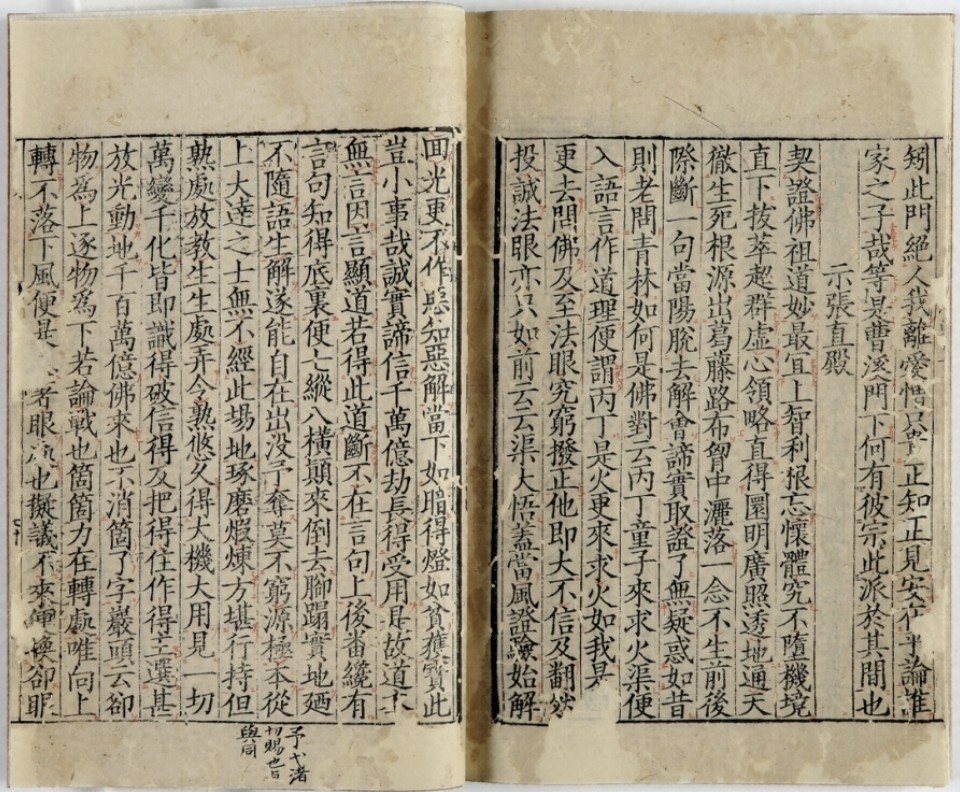 矧此門絶人我離愛惜只貴正知正見安有乎論誰
家之子哉等是曹溪門下何有彼宗此派於其間也
示張直殿
契證佛祖道妙最宜上智利根忘懷體究不墮機境
直下拔萃超群虛心領略直得圓明廣照透地通天
徹生死根源出葛藤路布智中灑落一念不生前後
際斷一句當陽脫去解會諦實取證了無疑惑如昔
則老問青林如何是佛對云丙丁童子來求火渠便
入語言作道理便謂丙丁是火更來求火如我是
更去問佛及至法眼究窮撥正他即大不信及翻然
投誠法眼亦只如前云云渠大悟蓋當風證驗始解
囬光更不作惡知惡解當下如暗得燈如貧獲寶此
豈小事哉誠實諦信千萬億劫長得受用是故道本
無言因言顯道若得此道斷不在言句上後番纔有
言句知得底裏便七縱八橫顛來倒去腳蹋實地廼
不隨語生解遂能自在出沒予奪莫不窮源極本從
上大達之士無不經此場地琢磨煆煉方堪行持但
熟處放教生生處弄令熟悠久得大機大用見一切
萬變千化皆即識得破信得及把得住作得主選甚
放光動地千百萬億佛來也不消箇了字巖頭云卻
物為上逐物為下若論戰也箇箇力在轉處唯向上
轉不落下風便是 著眼處也擬議不來便換卻眼
予弋渚
切賜也㠯
與同